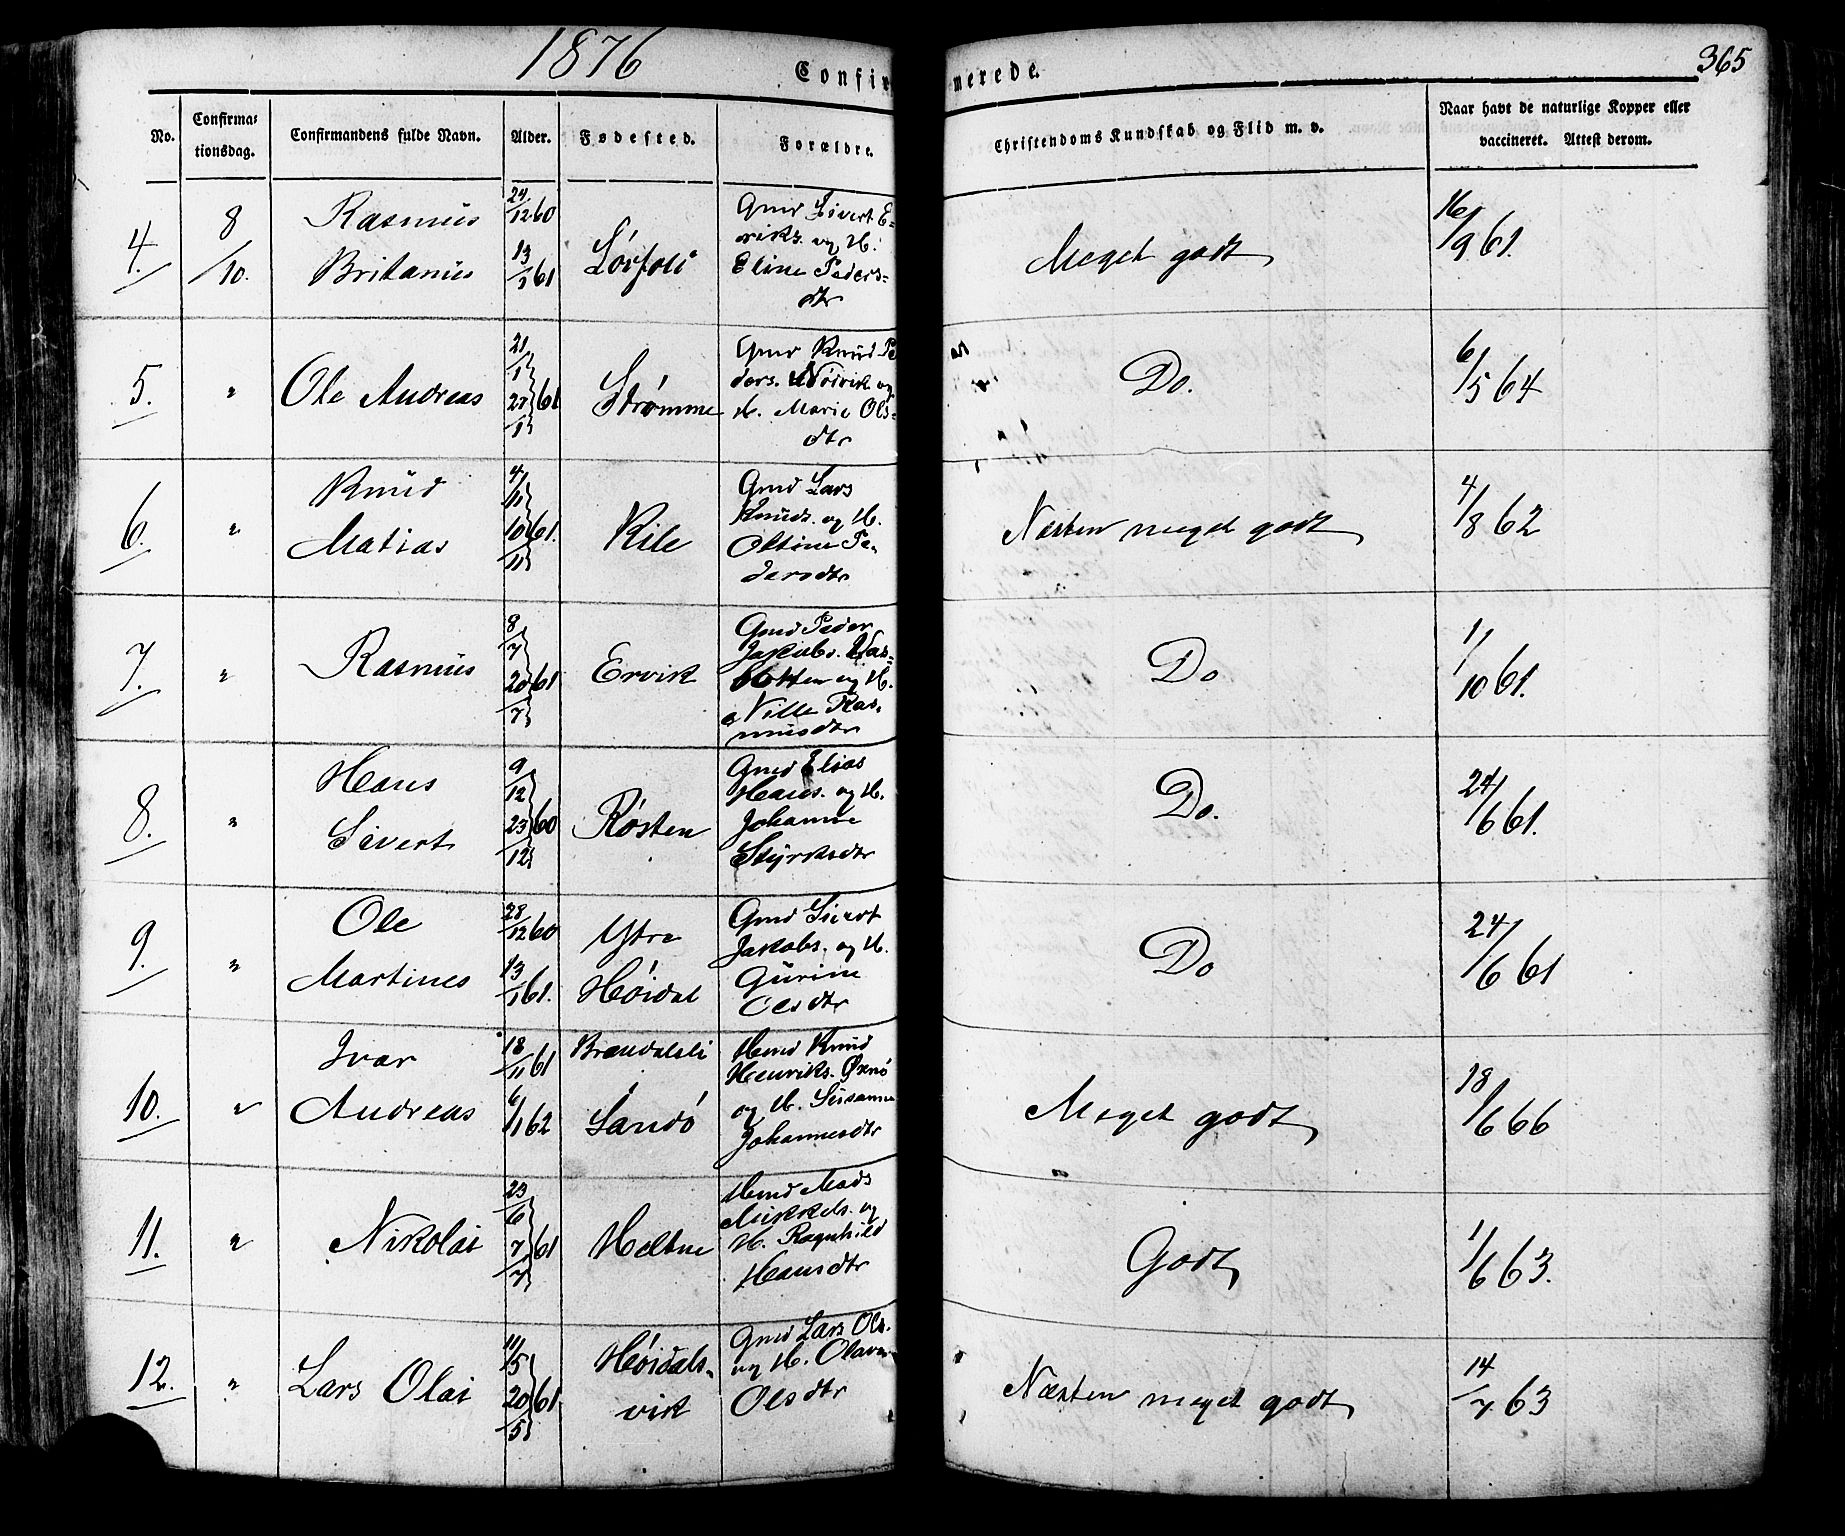 1876
Confirmerede.
365
No.
Confirma-
tionsdag.
Confirmandens fulde Navn.
Alder.
Fødested.
Forældre.
Christendoms Kundskab og Flid m. v.
Naar havt de naturlige Kopper eller
vaccineret. Attest derom.
4.
8/10.
Rasmus
Britanus
24/12 60
13/1 61
Gmd Sivert E-
riks. og H.
Eline Peders-
dtr
Meget godt
16/9 61.
5.
"
Ole Andreas
21/1
27/1 61
Strømme
Gmd Knud Pe
ders. Nødvik og
H. Marie Ols-
dtr
Do.
6/5 64
6.
"
Knud
Matias
4/11
10/11 61.
Kile
Gmd Lars
Knuds. og H.
Oltine Pe-
dersdtr
Næsten meget godt
4/8 62
7.
"
Rasmus
8/7
20/7 61
Ervik
Gmd Peder
Jakobs. Vas-
botten og H.
Nille Ras-
musdtr
Do
1/10 61.
8.
"
Hans
Sivert
9/12
23/12 60
Røsten
Gmd Elias
Hans. og H.
Johanne
Styrksdtr
Do.
24/6 61.
9.
"
Ole
Martines
28/12 60
13/1 61.
Ytre
Høidal
Gmd Sivert
Jakobs. og H.
Gurine
Olsdtr
Do
24/6 61
10.
"
Ivar
Andreas
18/11 61
6/1 62
Brandalsli
Sandø
Hmd Knud
Henriks. Øxnø
og H. Susanne
Johannesdtr
Meget godt
18/6 66
11.
"
Nikolai
23/6
7/7 61
Heltne
Hmd Mads
Mikkels. og
H. Ragnhild
Hansdtr
Godt
1/6 63.
12.
"
Lars Olai
11/5
20/5 61
Høidals-
vik
Gmd Lars Ols.
og H. Olave
Olsdtr
Næsten meget godt
14/7 63